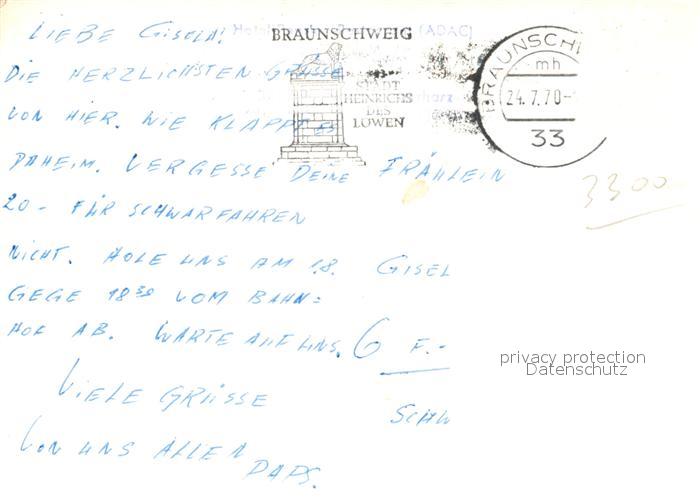 LIEBE GISELA!
Hotel (ADAC)
BRAUNSCHWEIG
DIE HERZLICHSTEN GRÜSSE
STADT
HEINRICHS
DES
LÖWEN
harz
BRAUNSCH
mh
24.7.70-
33
VON HIER. WIE KLAPPT ES
DAHEIM. VERGESSE DEINE FRÄHLEIN
20.- FÜR SCHWARFAHREN
3300
NICHT. HOLE UNS AM 1.8. GISEL
GEGE 18 30 VOM BAHN=
HOF AB. WARTE AUF UNS. 6 F.-
privacy protection
Datenschutz
VIELE GRÜSSE SCHW
VON UNS ALLEN
PAPS.